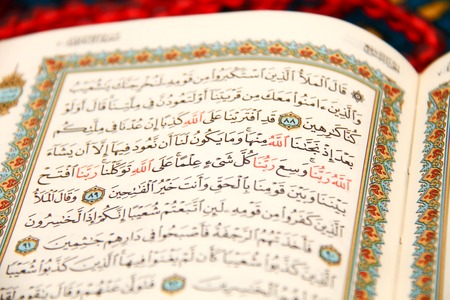 ۞ قَالَ ٱلْمَلَأُ ٱلَّذِينَ ٱسْتَكْبَرُوا۟ مِن قَوْمِهِۦ لَنُخْرِجَنَّكَ يَٰشُعَيْبُ
وَٱلَّذِينَ ءَامَنُوا۟ مَعَكَ مِن قَرْيَتِنَآ أَوْ لَتَعُودُنَّ فِى مِلَّتِنَا ۚ قَالَ أَوَلَوْ
كُنَّا كَٰرِهِينَ ٨٨ قَدِ ٱفْتَرَيْنَا عَلَى ٱللَّهِ كَذِبًا إِنْ عُدْنَا فِى مِلَّتِكُم
بَعْدَ إِذْ نَجَّىٰنَا ٱللَّهُ مِنْهَا ۚ وَمَا يَكُونُ لَنَآ أَن نَّعُودَ فِيهَآ إِلَّآ أَن يَشَآءَ
ٱللَّهُ رَبُّنَا ۚ وَسِعَ رَبُّنَا كُلَّ شَىْءٍ عِلْمًا ۚ عَلَى ٱللَّهِ تَوَكَّلْنَا ۚ رَبَّنَا ٱفْتَحْ
بَيْنَنَا وَبَيْنَ قَوْمِنَا بِٱلْحَقِّ وَأَنتَ خَيْرُ ٱلْفَٰتِحِينَ ٨٩ وَقَالَ ٱلْمَلَأُ
ٱلَّذِينَ كَفَرُوا۟ مِن قَوْمِهِۦ لَئِنِ ٱتَّبَعْتُمْ شُعَيْبًا إِنَّكُمْ إِذًا لَّخَٰسِرُونَ
٩٠ فَأَخَذَتْهُمُ ٱلرَّجْفَةُ فَأَصْبَحُوا۟ فِى دَارِهِمْ جَٰثِمِينَ ٩١
ٱلَّذِينَ كَذَّبُوا۟ شُعَيْبًا كَأَن لَّمْ يَغْنَوْا۟ فِيهَا ۚ ٱلَّذِينَ كَذَّبُوا۟ شُعَيْبًا
٩٢ فَتَوَلَّىٰ